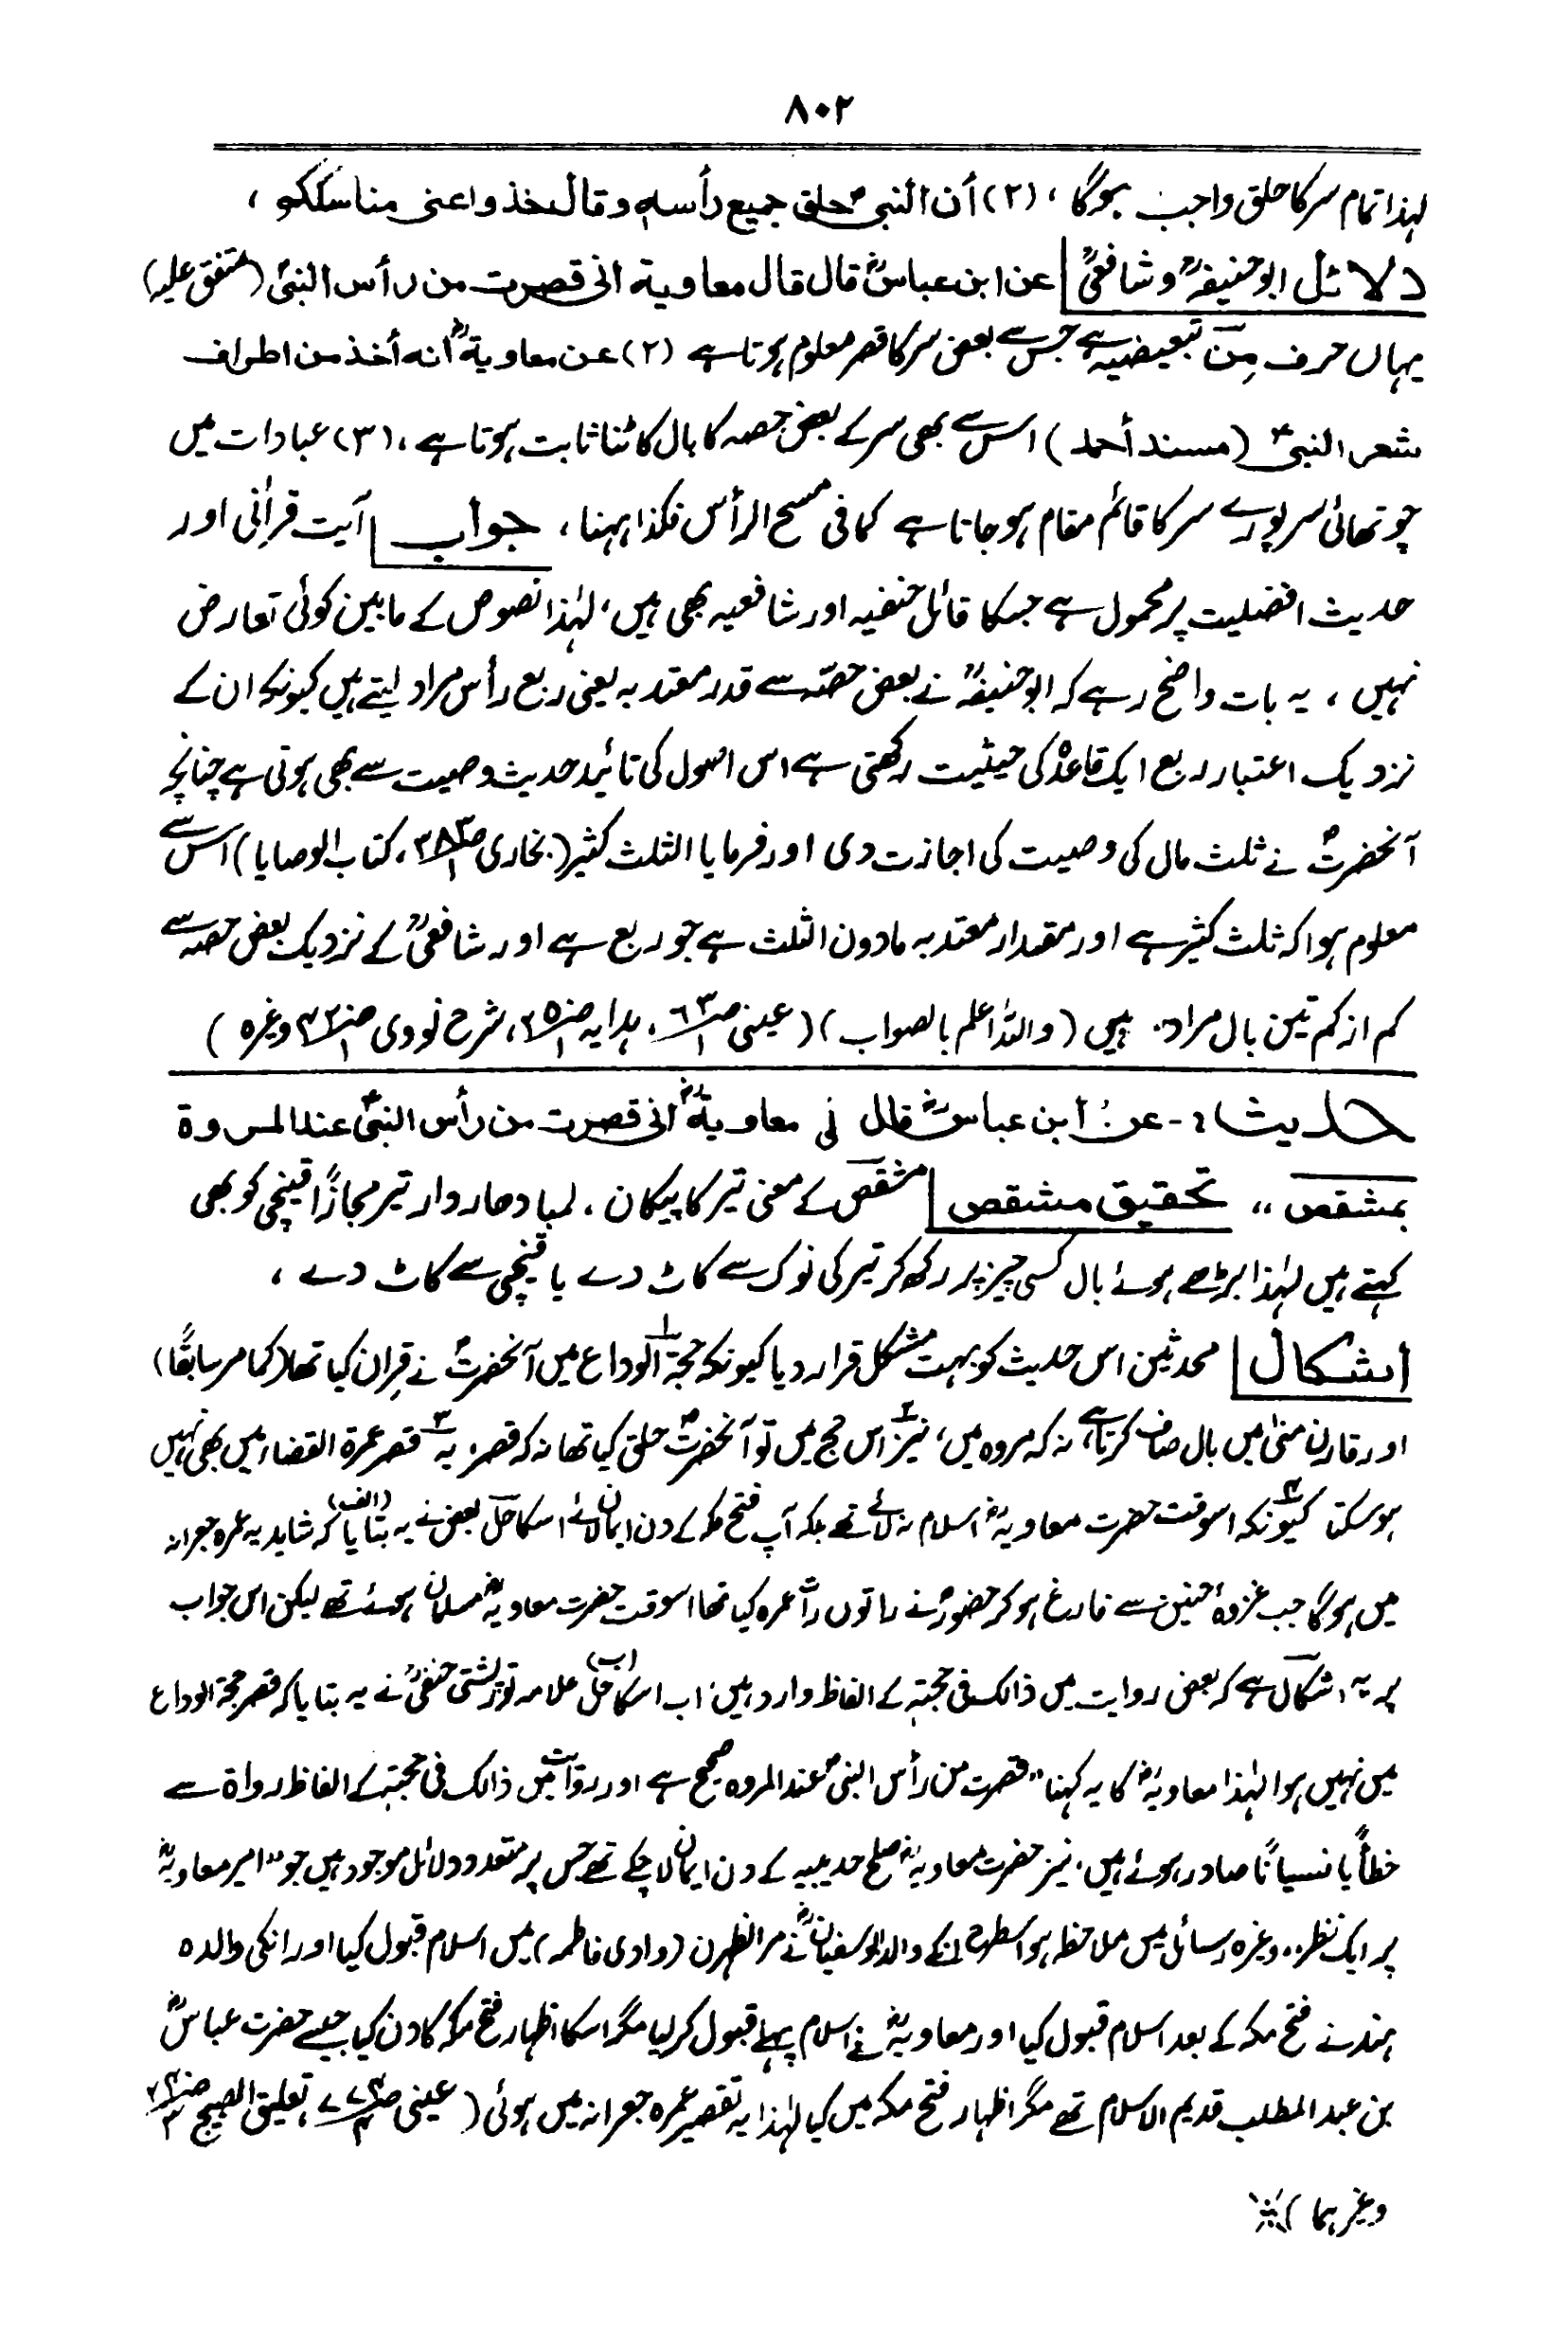 ۸۰۲
لہذا تمام سر کا حلق واجب ہوگا ، (۲) أن النبیؐ حلق جمیع رأسہ وقال خذوا عنی مناسککم ،
دلائل ابوحنیفہؒ وشافعیؒ عن ابن عباسؓ قال قال معاویة انی قصرت من رأس النبیؐ (متفق علیہ)
یہاں حرف مِن تبعیضیہ ہے جس سے بعض سر کا قصر معلوم ہوتا ہے (۲) عن معاویةؓ انه أخذ من اطراف
شعر النبیؐ (مسند أحمد) اس سے بھی سر کے بعض حصہ کا بال کاٹنا ثابت ہوتا ہے ، (۳) عبادات میں
چوتھائی سر پورے سر کا قائم مقام ہوجاتا ہے کما فی مسح الرأس فکذا ہہنا ، جواب آیت قرآنی اور
حدیث افضلیت پر محمول ہے جسکا قائل حنفیہ اور شافعیہ بھی ہیں ، لہٰذا نصوص کے مابین کوئی تعارض
نہیں ، یہ بات واضح رہے کہ ابوحنیفہؒ نے بعض حصّہ سے قدر معتد بہ یعنی ربع رأس مراد لیتے ہیں کیونکہ ان کے
نزدیک اعتبار ربع ایک قاعدہ کی حیثیت رکھتی ہے اس اصول کی تائید حدیث وصیت سے بھی ہوتی ہے چنانچہ
آنحضرتؐ نے ثلث مال کی وصیت کی اجازت دی اور فرمایا الثلث کثیر (بخاری ص۳۸۳/۱ ، کتاب الوصایا) اس سے
معلوم ہوا کہ ثلث کثیر ہے اور مقدار معتد بہ مادون الثلث ہے جو ربع ہے اور شافعیؒ کے نزدیک بعض حصہ سے
کم از کم تین بال مراد ہیں (واللہ اعلم بالصواب) (عینی ص ، ہدایہ ص ، شرح نووی ص وغیرہ )
حدیث :- عن ابن عباسؓ قال لی معاویةؓ انی قصرت من رأس النبیؐ عند المروة
بمشقص ،، تحقیق مشقص مشقص کے معنی تیر کا پیکان ، لمبا دھار دار تیر مجازًا قینچی کو بھی
کہتے ہیں لہٰذا بڑھے ہوئے بال کسی چیز پر رکھ کر تیر کی نوک سے کاٹ دے یا قینچی سے کاٹ دے ،
اشکال محدثین اس حدیث کو بہت مشکل قرار دیا کیونکہ ۱ حجۃ الوداع میں آنحضرتؐ نے قِران کیا تھا (کما مر سابقًا)
اور قارن منیٰ میں بال صاف کرتا ہے نہ کہ مروہ میں ، ۲ نیز اس حج میں تو آنحضرتؐ حلق کیا تھا نہ کہ قصر ، ۳ یہ قصر عمرة القضاء میں بھی نہیں
ہوسکتا کیونکہ اسوقت حضرت معاویہؓ اسلام نہ لائے تھے بلکہ آپ فتح مکہ کے دن ایمان لائے اسکا حل (الف) بعض نے یہ بتایا کہ شاید یہ عمرہ جعرانہ
میں ہوگا جب غزوۂ حنین سے فارغ ہوکر حضورؐ نے راتوں رات عمرہ کیا تھا اسوقت حضرت معاویہؓ مسلمان ہوئے تھے لیکن اس جواب
پر یہ اشکال ہے کہ بعض روایت میں ذالک فی حجتہ کے الفاظ وارد ہیں ، اب اسکا حل (ب) علامہ تورپشتی حنفیؒ نے یہ بتایا کہ قصر حجۃ الوداع
میں نہیں ہوا لہٰذا معاویہؓ کا یہ کہنا ،، قصرت من رأس النبیؐ عند المروہ صحیح ہے اور روایت میں ذالک فی حجتہ کے الفاظ رواۃ سے
خطأً یا نسیانًا صادر ہوئے ہیں ، نیز حضرت معاویہؓ صلح حدیبیہ کے دن ایمان لا چکے تھے جس پر متعدد دلائل موجود ہیں جو ،، امیر معاویہؓ
پر ایک نظر ،، وغیرہ رسائل میں ملاحظہ ہو اسطرح انکے والد ابوسفیانؓ نے مر الظہرن (وادی فاطمہ) میں اسلام قبول کیا اور انکی والدہ
ہند نے فتح مکہ کے بعد اسلام قبول کیا اور معاویہؓ نے اسلام پہلے قبول کرلیا مگر اسکا اظہار فتح مکہ کا دن کیا جیسے حضرت عباسؓ
بن عبد المطلب قدیم الاسلام تھے مگر اظہار فتح مکہ میں کیا لہٰذا یہ تقصیر عمرہ جعرانہ میں ہوئی (عینی ص ، تعلیق الصبیح ص
وغیرہما )